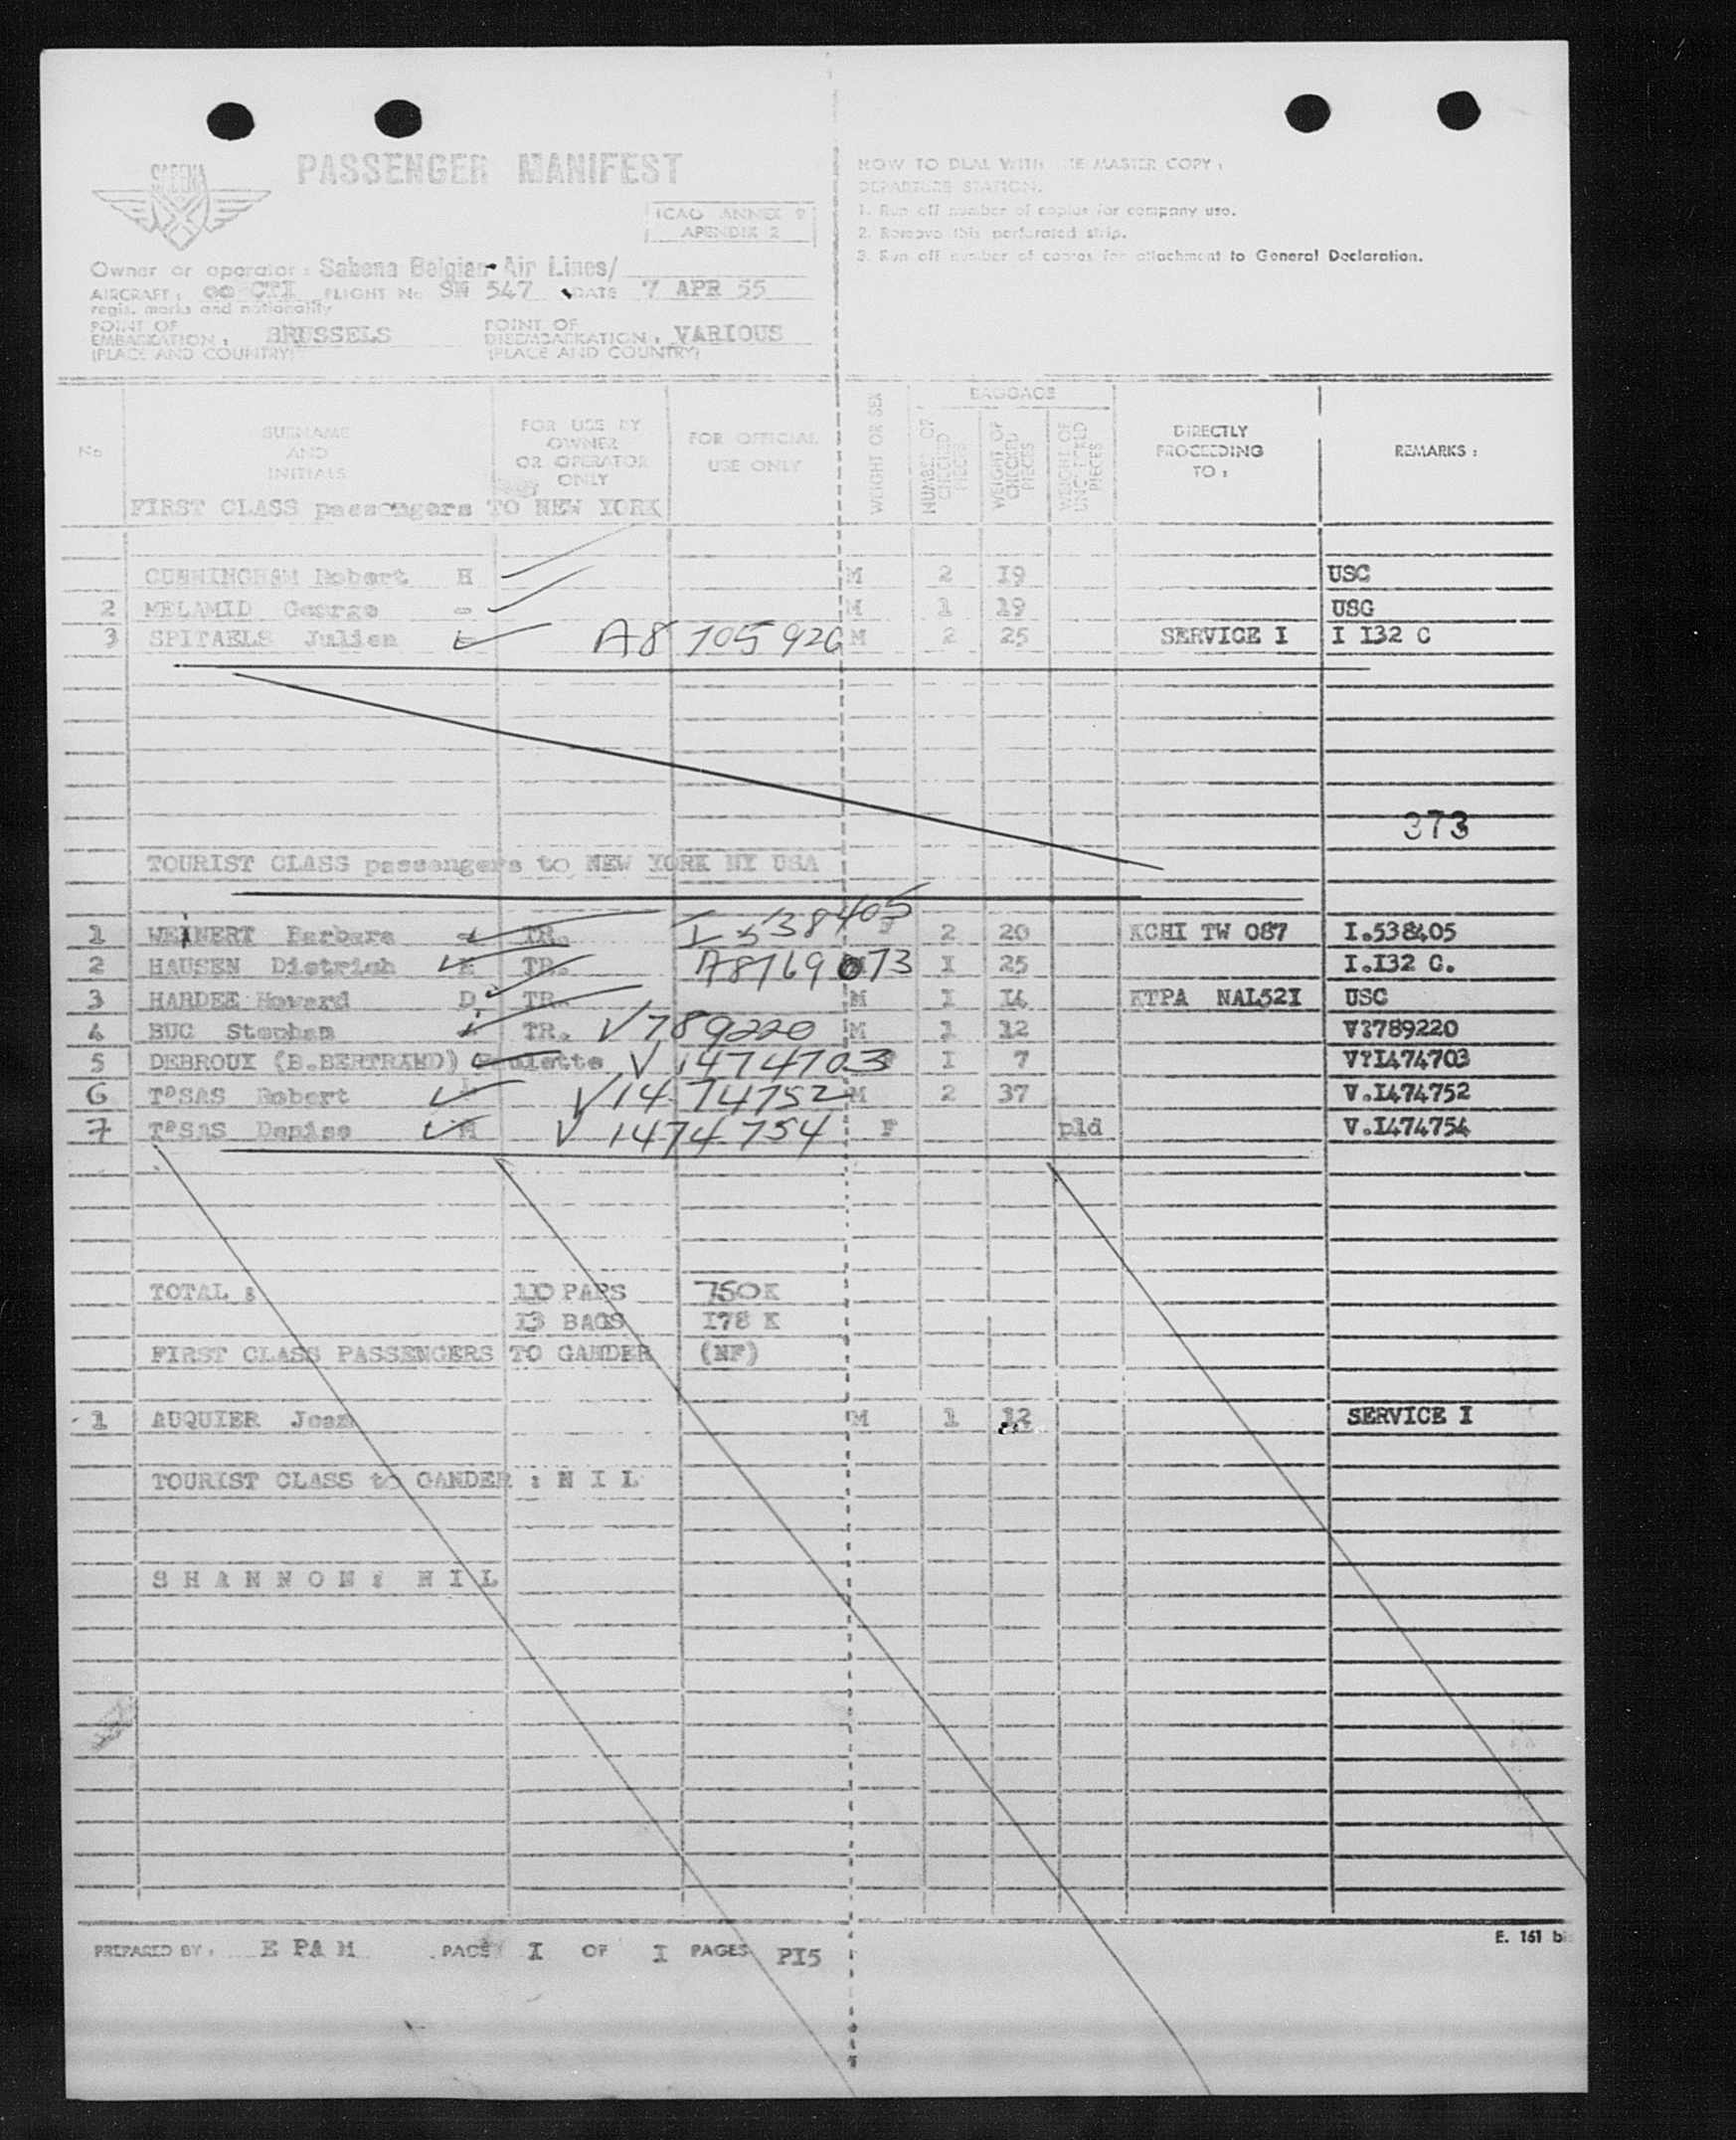 SABENA
PASSENGER MANIFEST
ICAO ANNEX 9
APENDIX 2
Owner or operator : Sabena Belgian Air Lines/
AIRCRAFT : OO CTI FLIGHT No SN 547 DATE 7 APR 55
regis. marks and nationality
POINT OF EMBARKATION : BRUSSELS POINT OF DISEMBARKATION : VARIOUS
(PLACE AND COUNTRY) (PLACE AND COUNTRY)
HOW TO DEAL WITH THE MASTER COPY :
DEPARTURE STATION.
1. Run off number of copies for company use.
2. Remove this perforated strip.
3. Run off number of copies for attachment to General Declaration.
No SURNAME AND INITIALS FOR USE BY OWNER OR OPERATOR ONLY FOR OFFICIAL USE ONLY WEIGHT OR SEX BAGGAGE NUMBER OF CHECKED PIECES WEIGHT OF CHECKED PIECES WEIGHT OF UNCHECKED PIECES DIRECTLY PROCEEDING TO : REMARKS :
FIRST CLASS passengers TO NEW YORK
CUNNINGHAM Robert H M 2 19 USC
2 MELAMID George - M 1 19 USC
3 SPITAELS Julien A8 105 926 M 2 25 SERVICE I I I32 C
373
TOURIST CLASS passengers to NEW YORK NY USA
1 WEINERT Barbara TR. I 538405 F 2 20 KCHI TW 087 I.538405
2 HAUSEN Dietrich K TR. A8769073 I 25 I.I32 C.
3 HARDEE Howard D TR. M I I4 KTPA NAL52I USC
4 BUC Stephen TR. V789220 M 1 12 V?789220
5 DEBROUX (B.BERTRAND) Paulette V 1474703 F I 7 V?I474703
6 T°SAS Robert V1474752 M 2 37 V.I474752
7 T°SAS Denise M V 1474754 F pld V.I474754
TOTAL : 10 PAPS 750K
13 BAGS 178 K
FIRST CLASS PASSENGERS TO GANDER (NF)
1 AUQUIER Jean M 1 12 SERVICE I
TOURIST CLASS to GANDER : N I L
S H A N N O N : N I L
PREPARED BY : E PA M PAGE I OF I PAGES PI5
E. 161 bis